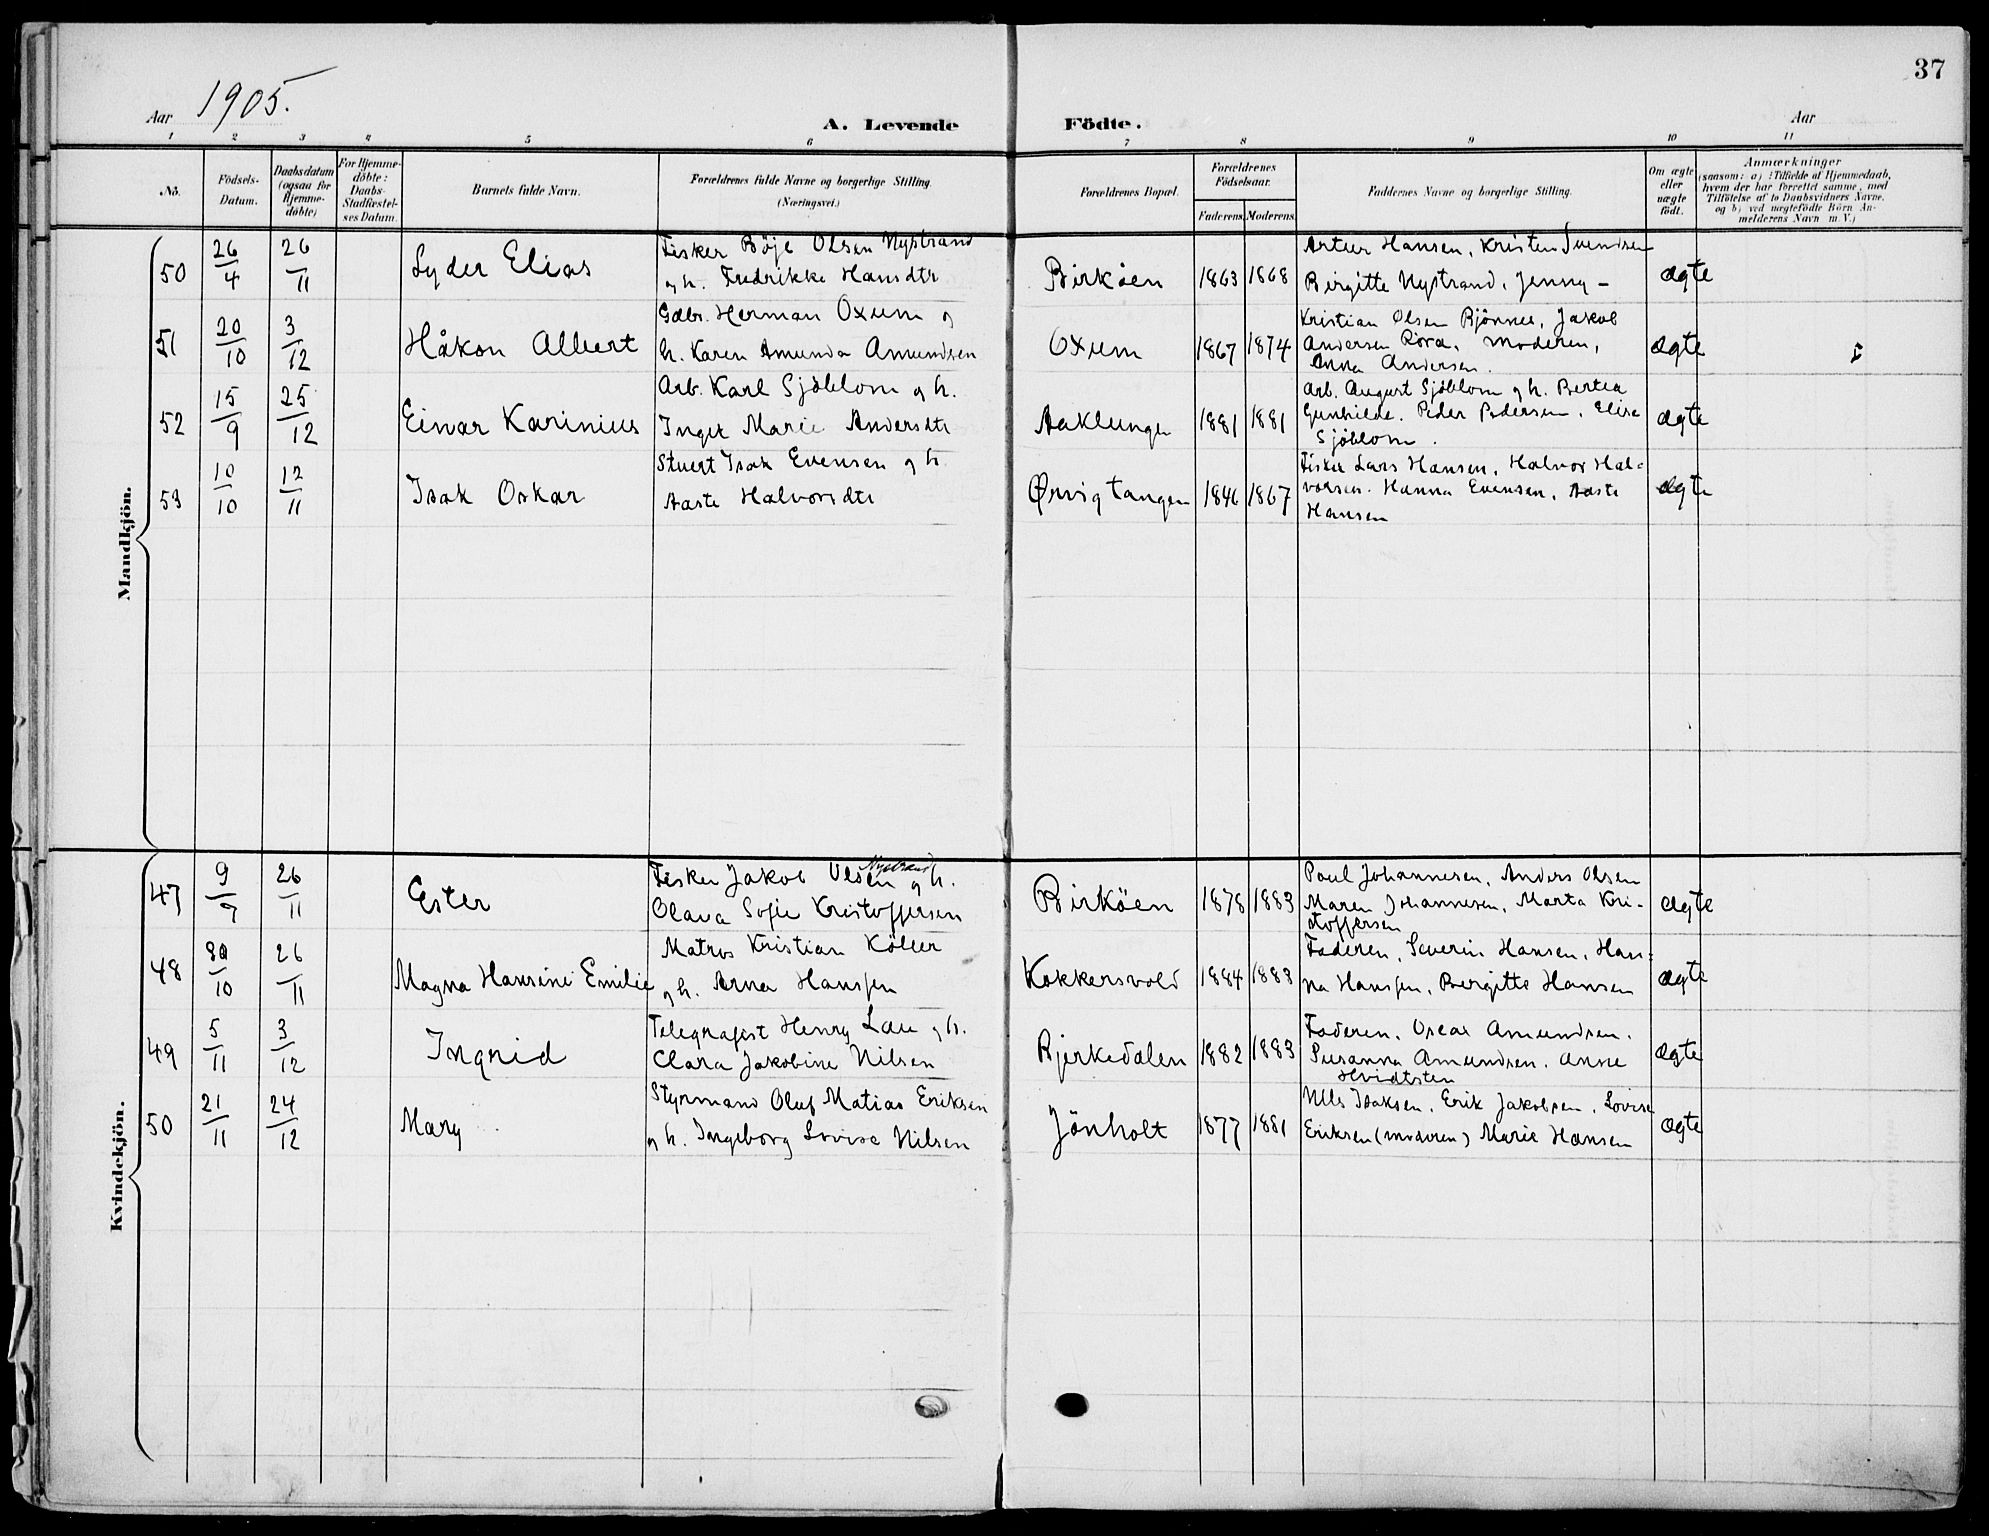 37
Aar 1905.
A. Levende Födte.
Aar
1 2 3 4 5 6 7 8 9 10 11
No. Födsels-Datum. Daabsdatum (ogsaa for Hjemme-döbte) For Hjemme-döbte: Daabs-Stadfæstel-ses Datum. Barnets fulde Navn. Forældrenes fulde Navne og borgerlige Stilling. (Næringsvei.) Forældrenes Bopæl. Forældrenes Födselsaar. Faderens. Moderens. Faddernes Navne og borgerlige Stilling. Om ægte eller uægte födt.
Anmærkninger
(saasom: a) i Tilfælde af Hjemmedaab,
hvem der har forrettet samme, med
Tilföielse af to Daabsvidners Navne.
og b) ved uægtefödte Börn An-
melderens Navn m. V.)
Mandkjön.
50 26/4 26/11 Lyder Elias Fisker Böje Olsen Nystrand
og h. Fredrikke Hansdtr Birköen 1863 1868 Artur Hansen, Kristen Svendsen
Birgitte Nystrand, Jenny - ægte
51 20/10 3/12 Håkon Albert Gdbr. Herman Oxum og
h. Karen Amunda Amundsen Oxum 1867 1874 Kristian Olsen Bjönnes, Jakob
Andersen Röra, moderen,
Anna Andersen. ægte
52 15/9 25/12 Einar Karinius Arb. Karl Sjöblom og h.
Inger Marie Andersdtr Aaklungen 1881 1881 Arb. August Sjöblom og h. Bertea
Gunhilde. Peder Pedersen, Elise
Sjöblom. ægte
53 10/10 12/11 Isak Oskar Stuert Isak Evensen og h.
Aaste Halvorsdtr Ørvigtangen 1846 1867 Fisker Lars Hansen, Halvor Hal-
vorsen. Hanna Evensen, Aaste
Hansen ægte
Kvindekjön.
47 9/9 26/11 Ester Fisker Jakob Olsen Nystrand og h.
Olava Sofie Kristoffersen Birköen 1878 1883 Poul Johannesen, Anders Olsen
Maren Johannesen, Marta Kri-
stoffersen ægte
48 10 26/11 Magna Hansine Emilie Matros Kristian Köller
og h. Anna Hanssen Kokkersvold 1884 1883 Faderen, Severin Hansen, Han-
na Hanssen, Bergitte Hansen ægte
49 5/11 3/12 Ingrid Telegrafist Henry Lau og h.
Clara Jakobine Nilsen Bjerkedalen 1882 1883 Faderen, Oscar Amundsen.
Susanna Amundsen. Anne
Hvidtsten ægte
50 21/11 24/12 Mary Styrmand Oluf Matias Eriksen
og h. Ingeborg Lovise Nilsen Jönholt 1877 1881 Nils Isaksen, Erik Jakobsen, Lovise
Eriksen (moderen) Marie Hansen ægte